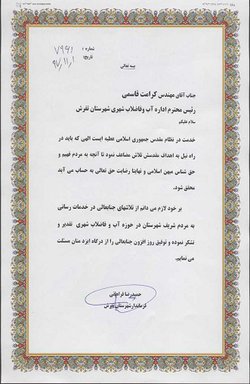 بسمه تعالی
شماره : ۷۹۹۱
تاریخ
جناب آقای مهندس کرامت قاسمی
رئیس محترم اداره آب وفاضلاب شهری شهرستان تفرش
سلام علیکم
خدمت در نظام مقدس جمهوری اسلامی عطیه ایست الهی که باید در
راه نیل به اهداف مقدسش تلاش مضاعف نمود تا آنچه به مردم فهیم و
حق شناس میهن اسلامی و نهایتا رضایت حق تعالی به حساب می آید
محقق شود.
بر خود لازم می دانم از تلاشهای جنابعالی در خدمات رسانی
به مردم شریف شهرستان در حوزه آب و فاضلاب شهری تقدیر و
تشکر نموده و توفیق روز افزون جنابعالی را از درگاه ایزد منان مسئلت
می نمایم.
حمیدرضا فراهانی
فرماندار شهرستان تفرش